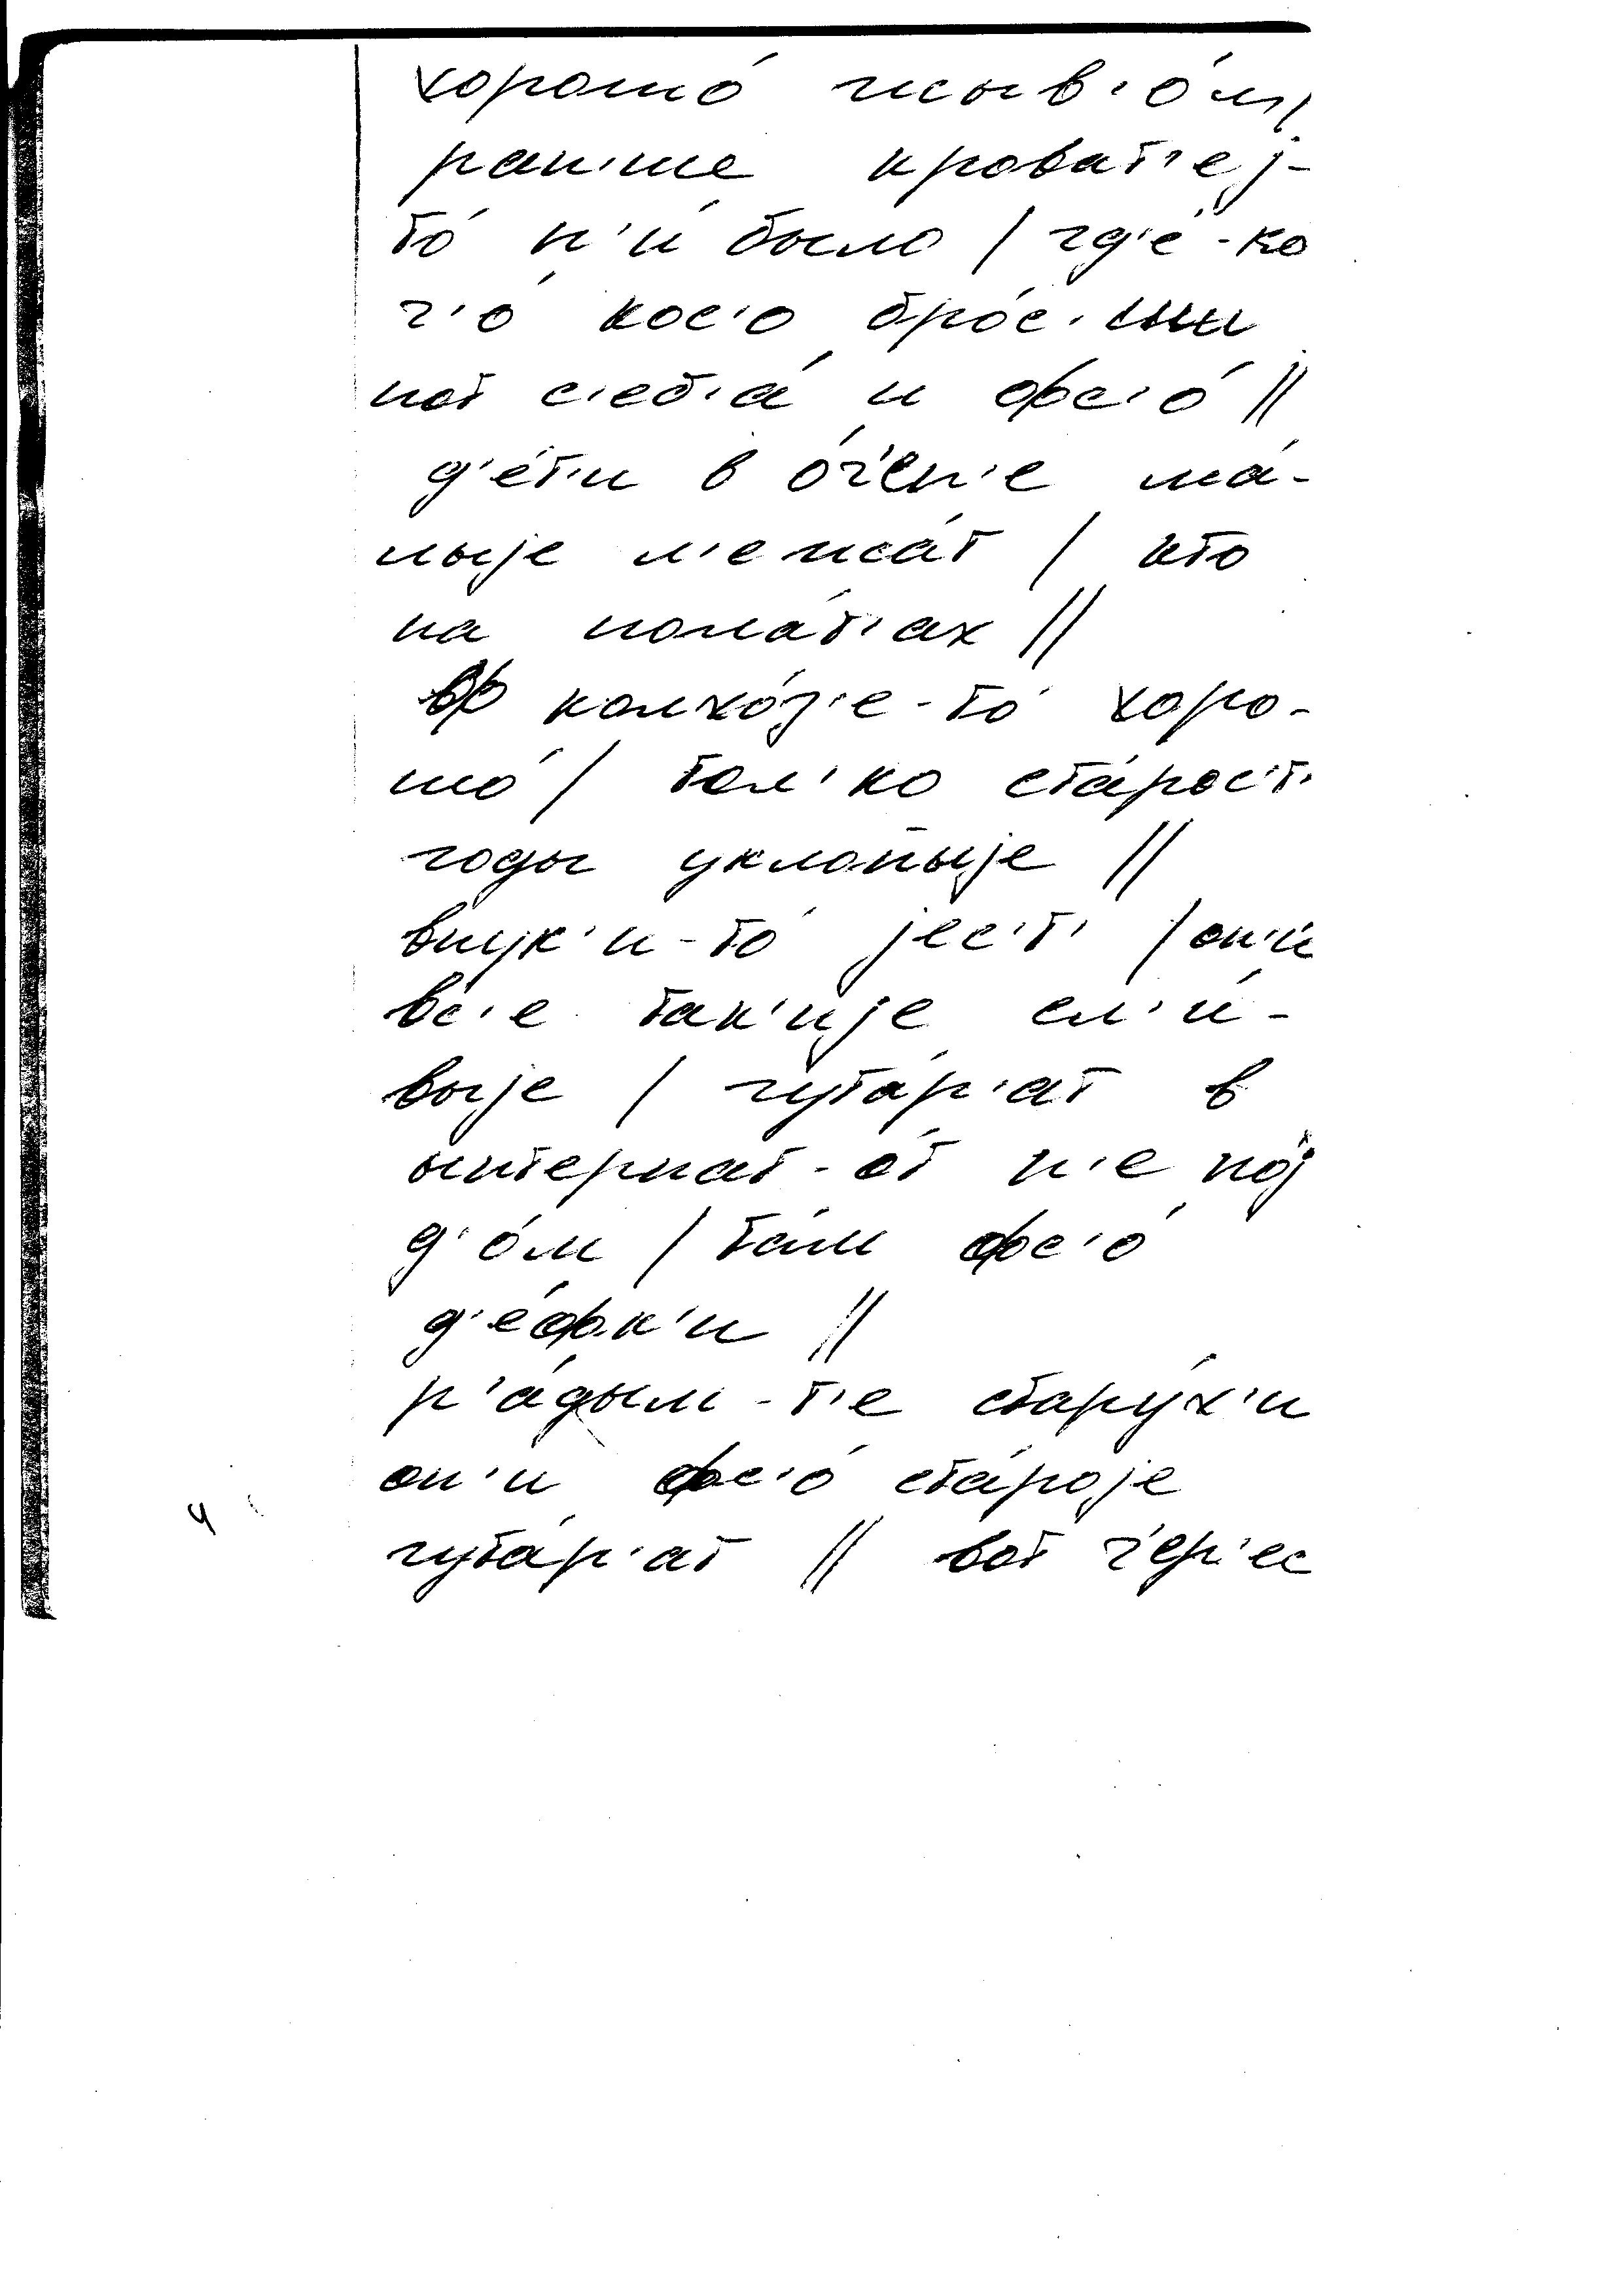 хорошо́ жыв'о́м,
ран'ше кроват'еј-
то́ н'и́ было / гд'е́-ко
ч'о́ кос'о бро́с'
пот с'еб'а́ и фс'о́ //
д'е́т'и в о́ч'ен'е ма́-
лыје л'ежа́т / кто
на пола́т'ах //
ф колхо́з'е-то́ хоро-
шо́ / тол'ко ста́рос'т'
годы уклоныје //
внук'и-то́ јес'т' / он'и́
вс'е так'ије сл'и́-
выје / гута́р'ат в
ынтернат-о́т н'е пој
д'о́м / та́м фс'о́
д'е́фк'и //
р'а́дым-т'е стару́х'и
он'и фс'о́ ста́роје
гута́р'ат // вот ч'ер'ес
ч